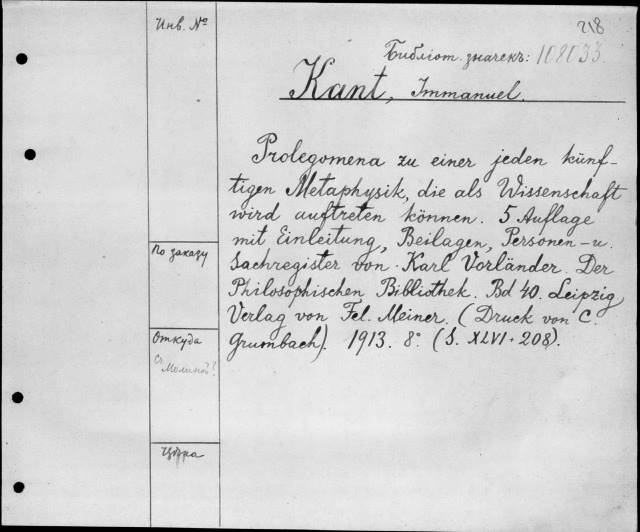 218
Инв. №
Библіот. значекъ: 108033
Kant, Immanuel.
Prolegomena zu einer jeden künf-
tigen Metaphysik, die als Wissenschaft
wird auftreten können. 5 Auflage
mit Einleitung, Beilagen, Personen- u.
Sachregister von Karl Vorländer. Der
Philosophischen Bibliothek. Bd 40. Leipzig
Verlag von Fel. Meiner. (Druck von C.
Grumbach). 1913. 8° (S. XLVI + 208).
По заказу
Откуда
Молиной?
Цѣна